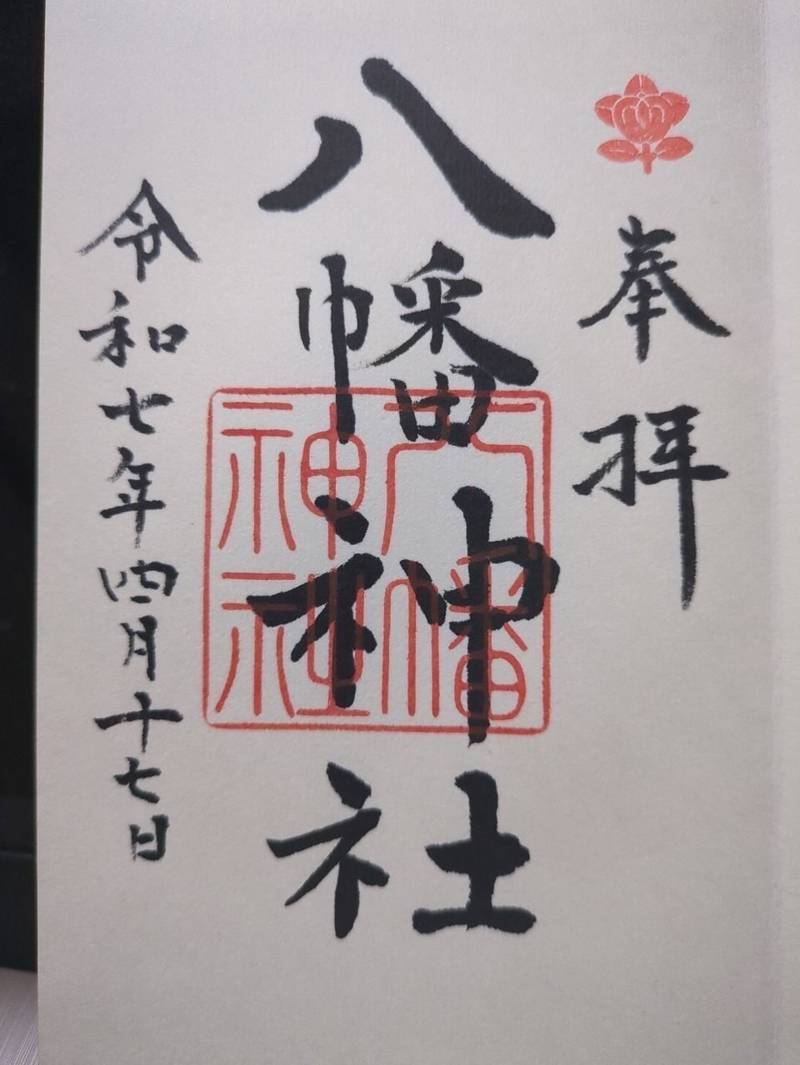 奉拝
八幡神社
八幡
神社
令和七年四月十七日